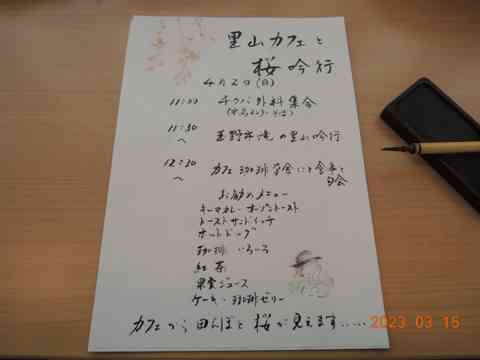 里山カフェと
桜吟行
4月2日(日)
11:00 チクバ外科集合
11:30
の里山吟行
12:30 カフェ 珈琲
句会
お勧めメニュー
キーマカレー オープントースト
トーストサンドイッチ
ホットドッグ
珈琲 いろいろ
紅茶
果実ジュース
ケーキ 珈琲ゼリー
カフェから田んぼと桜が見えます.....
2023 03 15